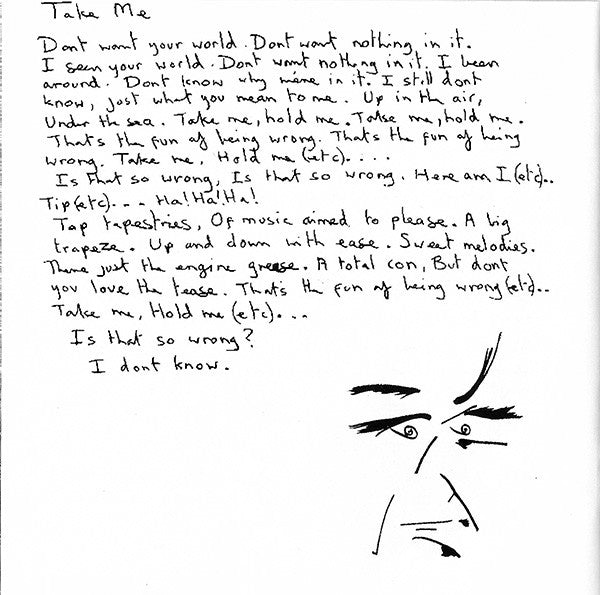 Take Me
Dont want your world. Dont want nothing in it.
I seen your world. Dont want nothing in it. I been
around. Dont know why me'ne in it. I still dont
know, just what you mean to me. Up in the air,
Under the sea. Take me, hold me. Take me, hold me.
That's the fun of being wrong. That's the fun of being
wrong. Take me, Hold me (etc)....
Is that so wrong, Is that so wrong. Here am I (etc)..
Tip (etc)... Ha! Ha! Ha!
Tap tapestries, Of music aimed to please. A big
trapeze. Up and down with ease. Sweet melodies.
Theme just the engine grease. A total con, But dont
you love the tease. That's the fun of being wrong (etc)..
Take me, Hold me (etc)...
Is that so wrong?
I dont know.